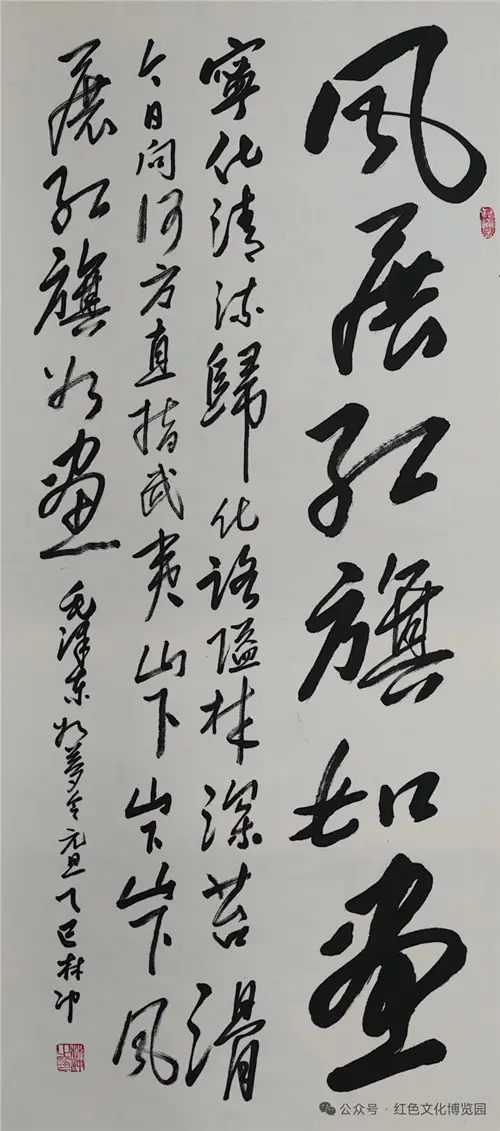 风展红旗如畫
寧化清流歸化路隘林深苔滑
今日向何方直指武夷山下山下山下风
展红旗如畫
毛泽东如梦令元旦乙巳林冲
公众号·红色文化博览园